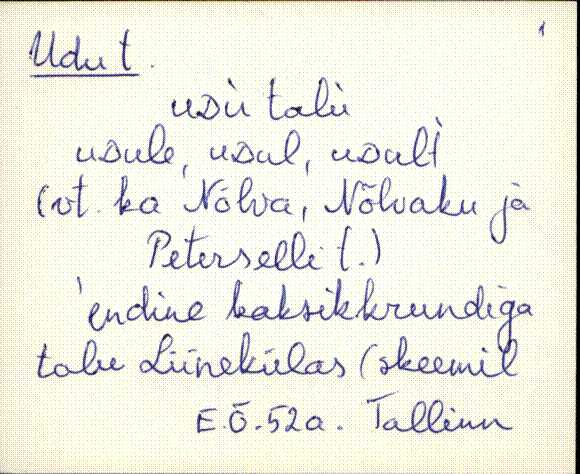 1
Udu t.
uᴅù talù
uᴅule, uᴅul, uᴅult
(vt. ka Nõlva, Nõlvaku ja
Peterselli t.)
'endine kaksikkrundiga
talu Liinekülas (skeemil
E.Ö.52a. Tallinn